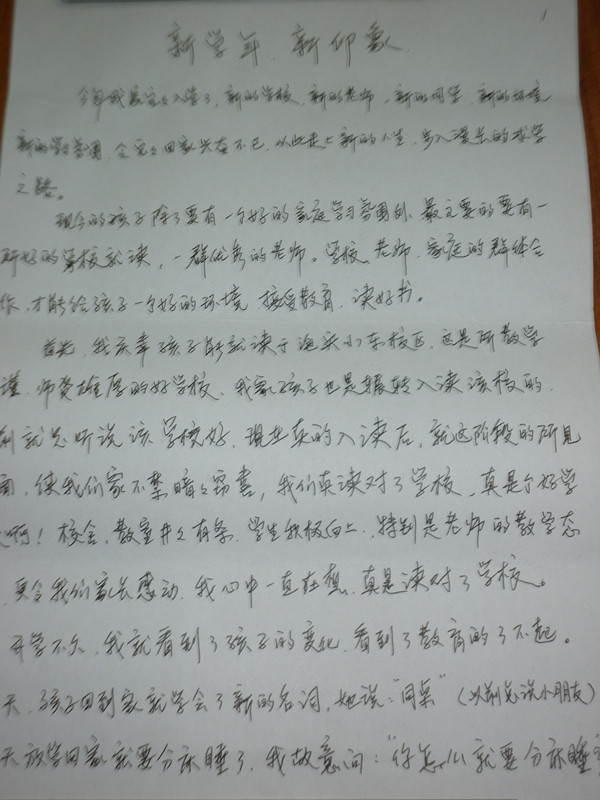 1
新学年、新印象
今年我家宝宝入学了，新的学校、新的老师，新的同学、新的环境
新的学习氛围，令宝宝回家兴奋不已，从此走上新的人生，步入漫长的求学
之路。
现今的孩子除了要有一个好的家庭学习氛围外、最主要的要有一
所好的学校就读，一群优秀的老师。学校、老师、家庭的群体合
作，才能给孩子一个好的环境、接受教育、读好书。
首先，我庆幸孩子能就读于 小东校区，这是所教学
谨、师资雄厚的好学校、我家孩子也是辗转入读该校的、
前就总听说该学校好、现业真的入读后，就这阶段的所见
闻，使我们家不禁暗暗窃喜，我们真读对了学校，真是个好学
校啊！校舍、教室井井有条，学生积极向上、特别是老师的教学态
更令我们家长感动、我心中一直在想、真是读对了学校。
开学不久、我就看到了孩子的变化、看到了教育的了不起。
天、孩子回到家就学会了新的名词，她说："同桌"（以前总说小朋友）
天放学回家就要分床睡了，我故意问："你怎么就要分床睡